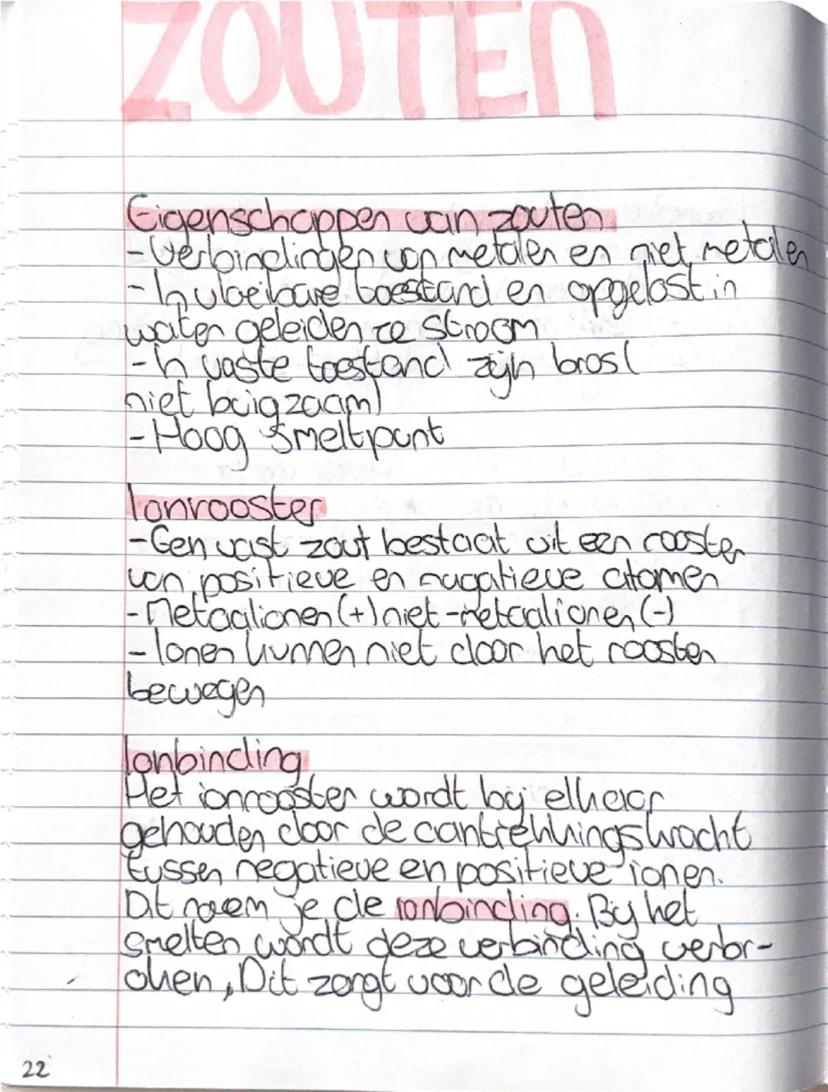 ZOUTEN
Eigenschappen van zouten
- Verbindingen van metalen en niet metalen
- In vloeibare toestand en opgelost in
water geleiden ze stroom
- In vaste toestand zijn bros(
niet buigzaam)
- Hoog smeltpunt
Ionrooster
- Een vast zout bestaat uit een rooster
van positieve en nagatieve atomen
- Metaalionen (+) niet-metaalionen (-)
- Ionen kunnen niet door het rooster
bewegen
Ionbinding
Het ionrooster wordt bij elkaar
gehouden door de aantrekkingskracht
tussen negatieve en positieve ionen.
Dit noem je de ionbinding. Bij het
smelten wordt deze verbinding verbr-
oken, Dit zorgt voor de geleiding
22